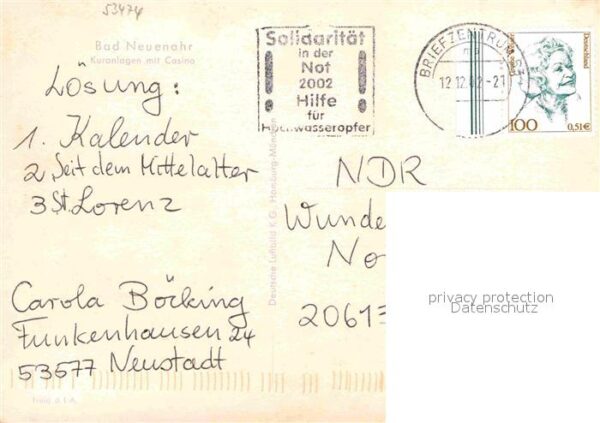 53474
Bad Neuenahr
Kuranlagen mit Casino
Lösung:
1. Kalender
2 Seit dem Mittelalter
3 St. Lorenz
Carola Böcking
Funkenhausen 24
53577 Neustadt
Solidarität
in der
Not
2002
Hilfe
für
Hochwasseropfer
BRIEFZENTRUM 53
12.12.02-21
Deutschland
100
0,51€
Deutsche Luftbild K.G. Hamburg-München
NDR
Wunde
No
20613
privacy protection
Datenschutz